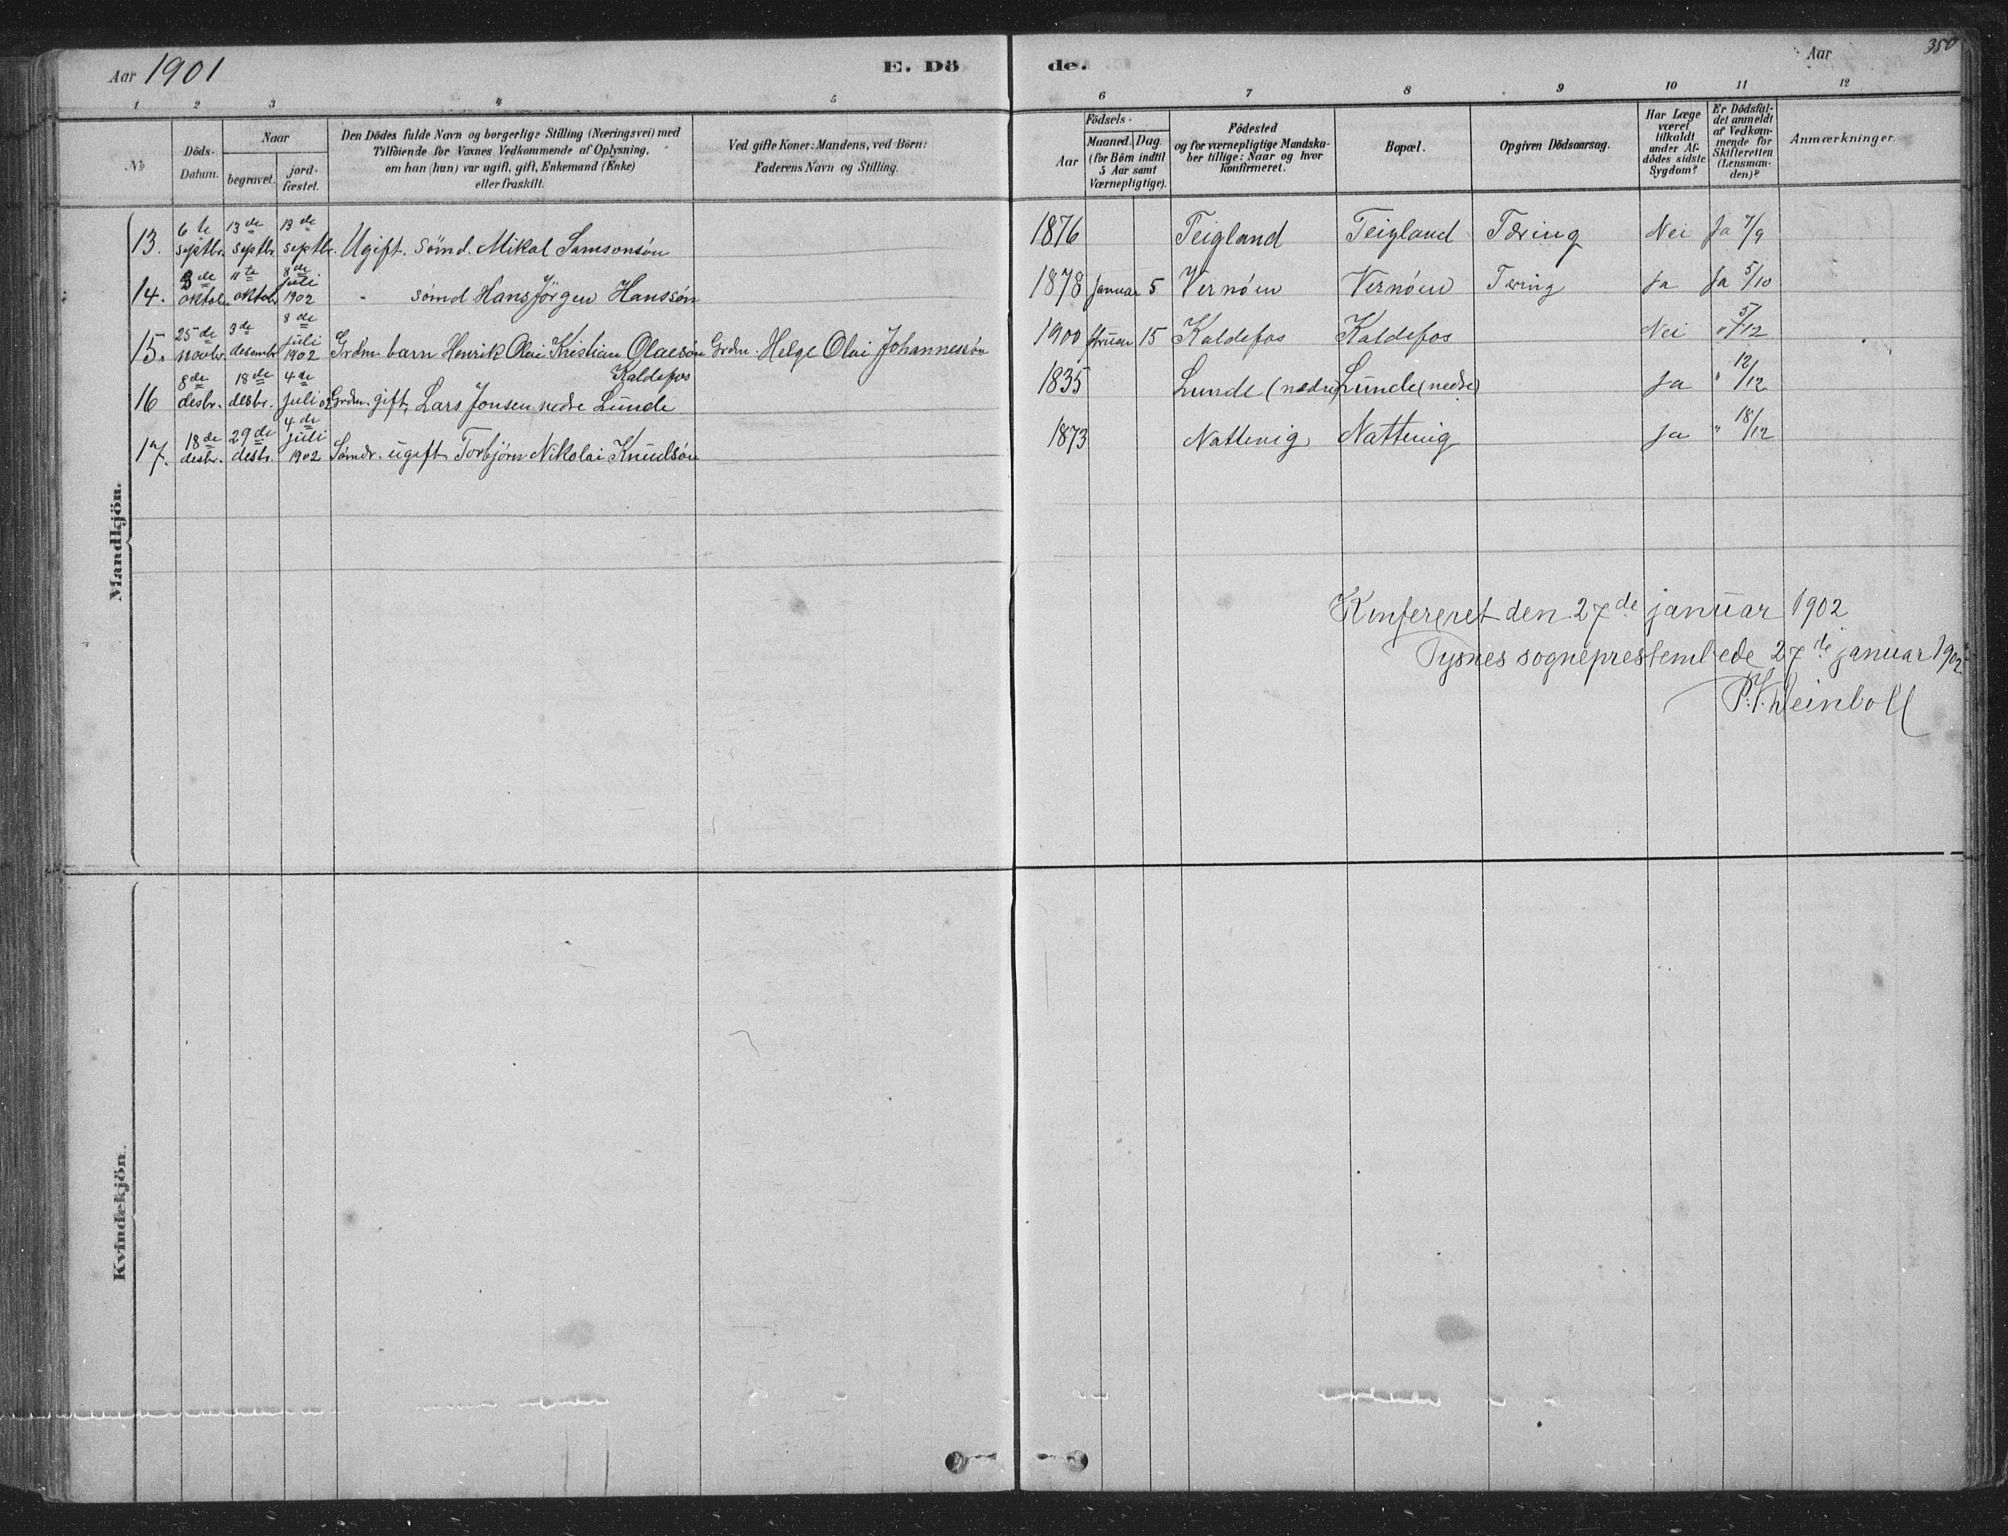 Aar 1901 E. Dö de. Aar 350
1 2 3 4 5 6 7 8 9 10 11 12
№
Döds-
Datum.
Naar
begravet.
jord-
fæstet.
Den Dödes fulde Navn og borgerlige Stilling (Næringsvei) med
Tilföiende for Voxnes Vedkommende af Oplysning,
om han (hun) var ugift, gift, Enkemand (Enke)
eller fraskilt.
Ved gifte Koner: Mandens, ved Börn:
Faderens Navn og Stilling.
Födsels-
Aar
Maaned. Dag.
(for Börn indtil
5 Aar samt
Værnepligtige).
Födested
og for værnepligtige Mandska-
ber tillige: Naar og hvor
Konfirmeret.
Bopæl.
Opgiven Dödsaarsag.
Har Læge
været
tilkaldt
under Af-
dödes sidste
Sygdom?
Er Dödsfal-
det anmeldt
af Vedkom-
mende for
Skifteretten
(Lensman-
den)?
Anmærkninger.
Mandkjön.
13. 6te septbr. 13de septbr. 13de septbr. Ugift. sömd. Mikal Samsonsön 1876 Teigland Teigland Tæring Nei Ja 7/9
14. 3de oktob. 11te oktob. 8de juli 1902 " sömd Hans Jörgen Hanssön 1878 Januar 5 Vernöen Vernöen Tæring Ja Ja 5/10
15. 25de novbr. 3de desembr 8de juli 1902 Grdm. barn Henrik Olai Kristian Olaisön Kaldefos Grdm. Helge Olai Johannessön 1900 15 Kaldefos Kaldefos Nei " 5/12
16 8de desbr. 18de desbr. 4de juli 02 Grdm. gift, Lars Jonsen nedre Lunde 1835 Lunde (nedre) Lunde (nedre) Ja " 12/12
17. 18de desbr. 29de desbr. 4de juli 1902 Sömdr. ugift, Torbjörn Nikolai Knudsön 1873 Nattevig Nattevig Ja " 18/12
Konfereret den 27de januar 1902
Tysnes sogneprestembede 27de januar 1902
Kvindekjön.